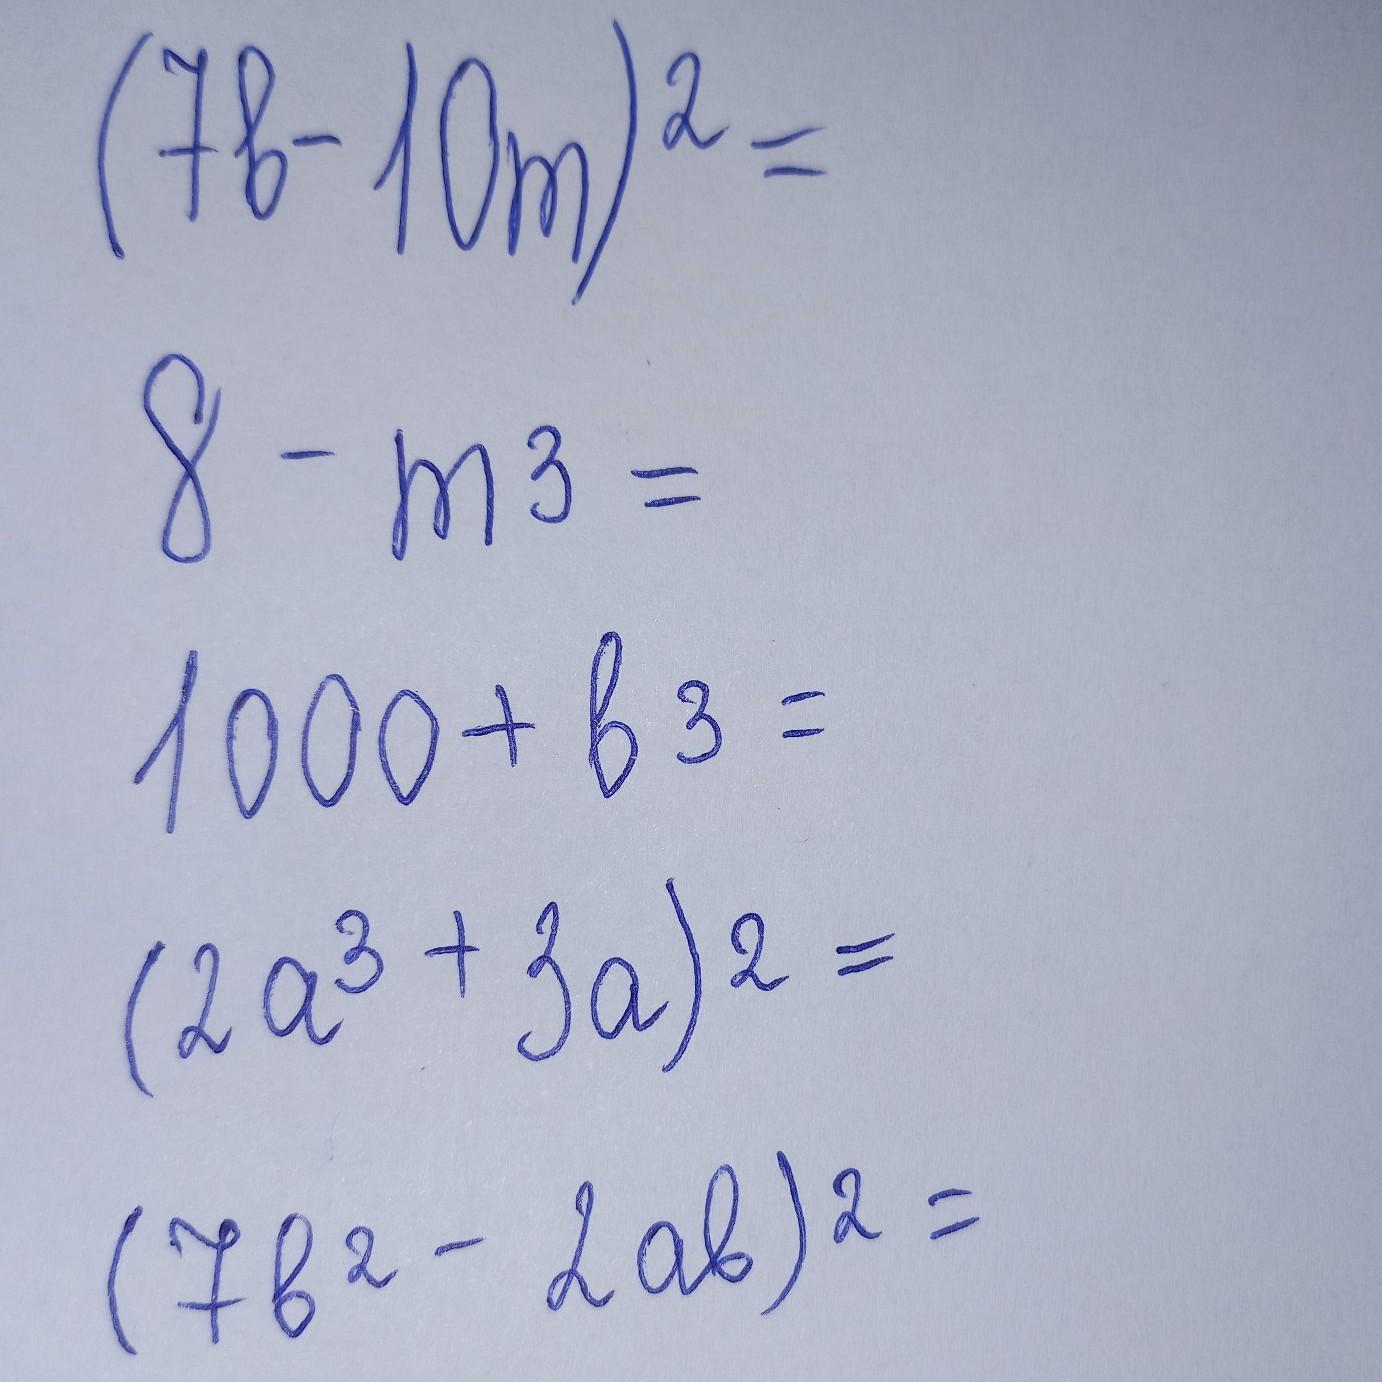 (7b-10m)²=
8-m³=
1000+b³=
(2a³+3a)²=
(7b²-2ab)²=